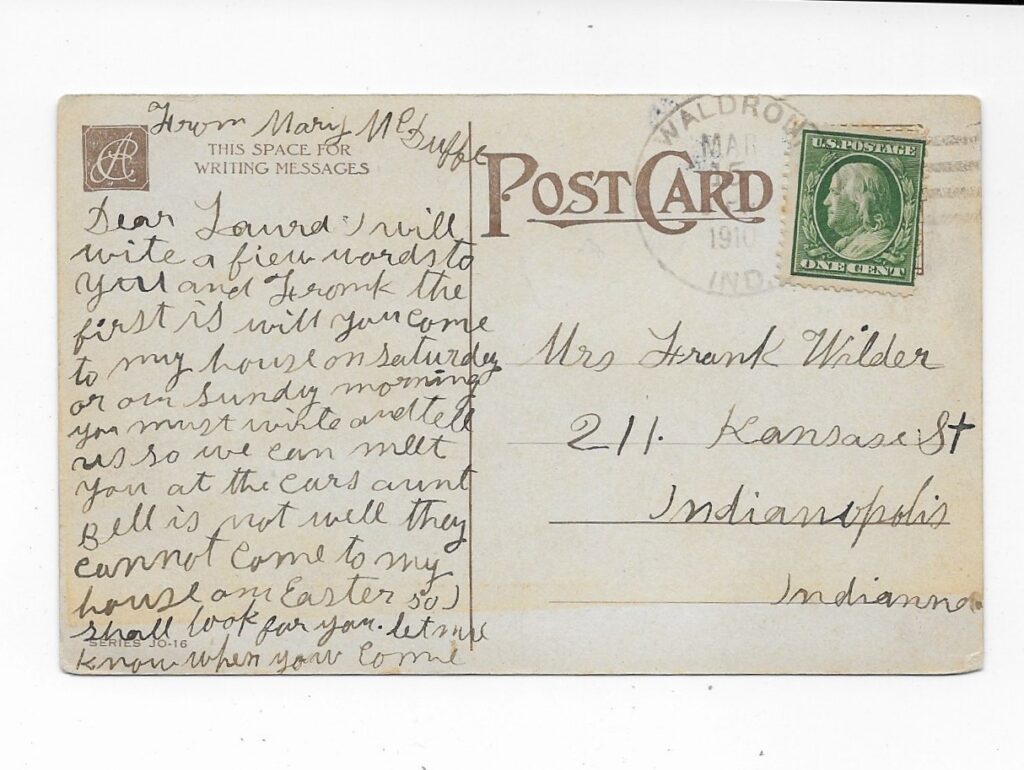 From Mary McDuffe
THIS SPACE FOR
WRITING MESSAGES
Dear Laura I will
write a fiew words to
you and Fronk the
first is will you come
to my house on saturday
or on sunday morning
you must write and tell
us so we can meet
you at the cars aunt
Bell is not well they
cannot come to my
house on Easter so I
shall look for you. let me
SERIES JO-16
know when you come
POST CARD
WALDRON
MAR
15
1910
IND.
U.S. POSTAGE
ONE CENT
Mrs Frank Wilder
211. Kansas St
Indianopolis
Indianna.